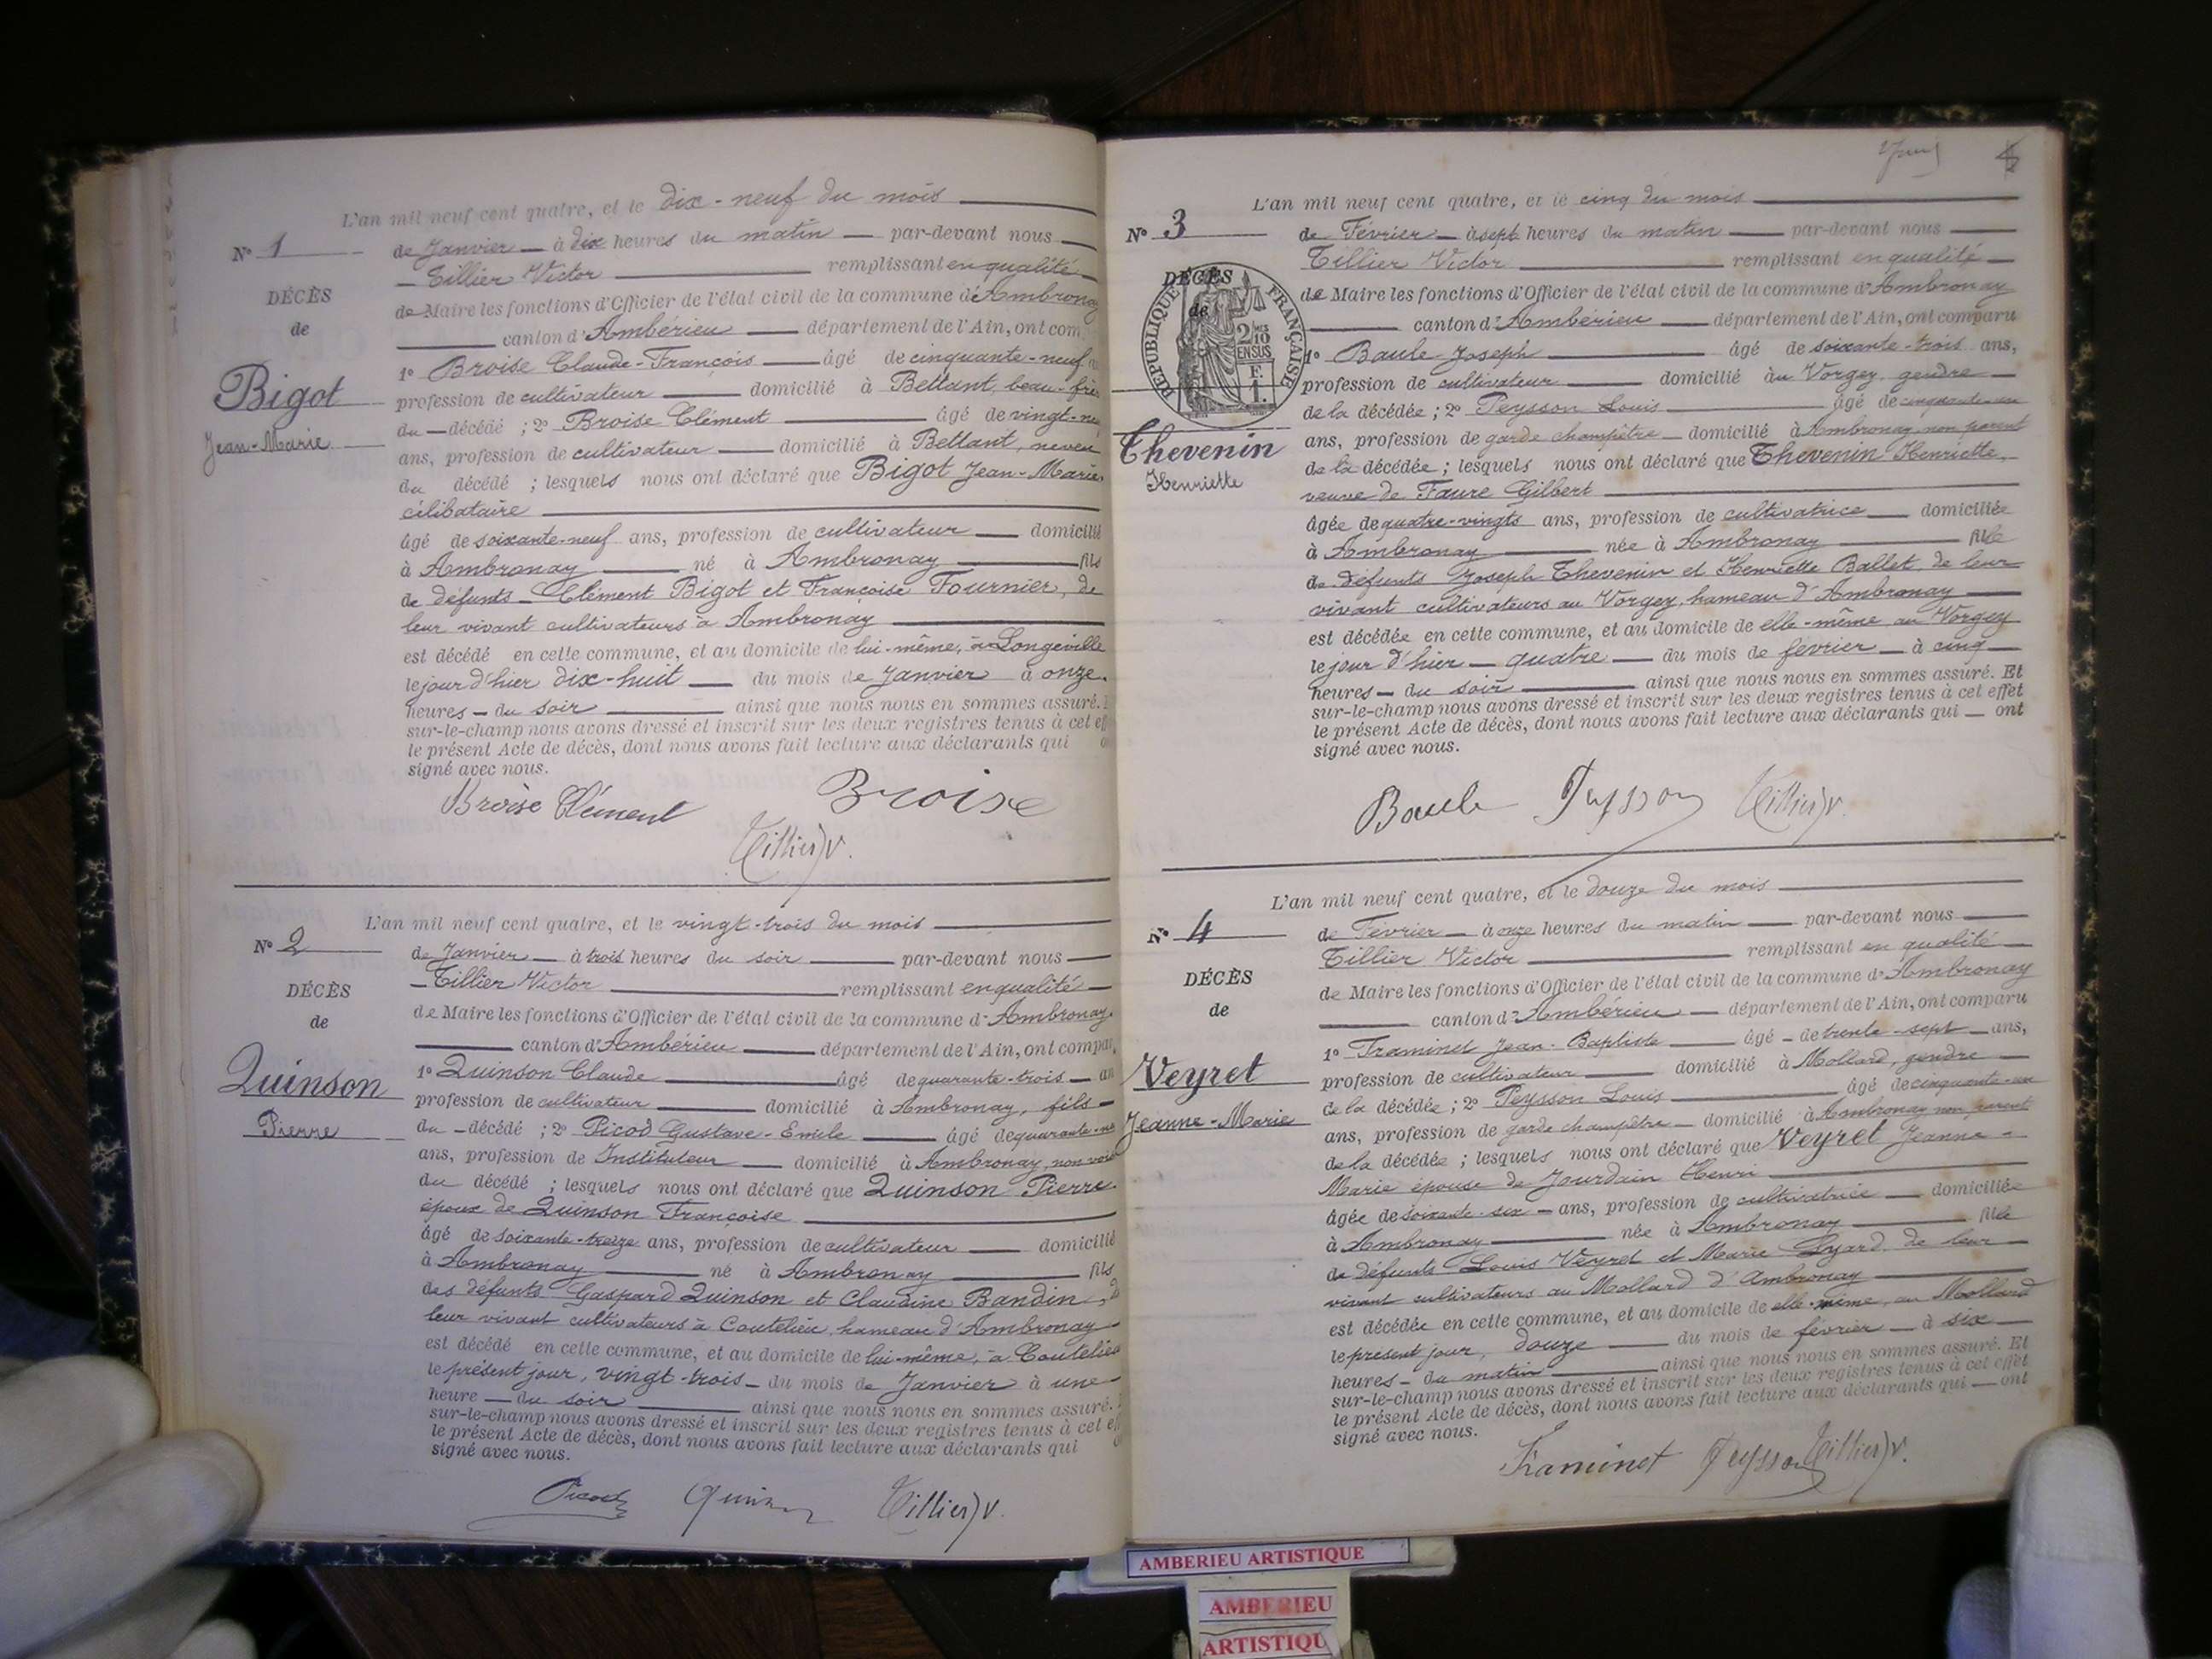 L'an mil neuf cent quatre, et le dix-neuf du mois
N° 1
de Janvier à dix heures du matin par-devant nous
Tillier Victor remplissant en qualité
DÉCÈS
de Maire les fonctions d'Officier de l'état civil de la commune d'Ambronay
de
canton d'Ambérieu département de l'Ain, ont com
1° Broise Claude-François âgé de cinquante-neuf
Bigot
profession de cultivateur domicilié à Bettant, beau-frè
du décédé ; 2° Broise Clément âgé de vingt-ne
Jean-Marie
ans, profession de cultivateur domicilié à Bettant, neveu
du décédé ; lesquels nous ont déclaré que Bigot Jean-Marie
célibataire
âgé de soixante-neuf ans, profession de cultivateur domicilié
à Ambronay né à Ambronay fils
de défunts Clément Bigot et Françoise Fournier, de
leur vivant cultivateurs à Ambronay
est décédé en cette commune, et au domicile de lui-même, à Longeville
le jour d'hier dix-huit du mois de Janvier à onze
heures du soir ainsi que nous nous en sommes assuré.
sur-le-champ nous avons dressé et inscrit sur les deux registres tenus à cet ef
le présent Acte de décès, dont nous avons fait lecture aux déclarants qui
signé avec nous.
Broise Clément Broise
Tillier V.
L'an mil neuf cent quatre, et le vingt-trois du mois
N° 2
de Janvier à trois heures du soir par-devant nous
Tillier Victor remplissant en qualité
DÉCÈS
de Maire les fonctions d'Officier de l'état civil de la commune d'Ambronay
de
canton d'Ambérieu département de l'Ain, ont compar
1° Quinson Claude âgé de quarante-trois an
Quinson
profession de cultivateur domicilié à Ambronay, fils
Pierre
du décédé ; 2° Picod Gustave-Emile âgé de quarante-
ans, profession de Instituteur domicilié à Ambronay, non
du décédé ; lesquels nous ont déclaré que Quinson Pierre
époux de Quinson Françoise
âgé de soixante-treize ans, profession de cultivateur domicilié
à Ambronay né à Ambronay fils
des défunts Gaspard Quinson et Claudine Bandin, de
leur vivant cultivateurs à Coutelieu, hameau d'Ambronay
est décédé en cette commune, et au domicile de lui-même, à Coutelieu
le présent jour, vingt-trois du mois de Janvier à une
heure du soir ainsi que nous nous en sommes assuré.
sur-le-champ nous avons dressé et inscrit sur les deux registres tenus à cet ef
le présent Acte de décès, dont nous avons fait lecture aux déclarants qui
signé avec nous.
Picod Quinson Tillier V.
L'an mil neuf cent quatre, et le cinq du mois
N° 3
de Février à sept heures du matin par-devant nous
Tillier Victor remplissant en qualité
DÉCÈS
de
RÉPUBLIQUE FRANÇAISE
2/10 EN SUS
F.
1.
de Maire les fonctions d'Officier de l'état civil de la commune d'Ambronay
canton d'Ambérieu département de l'Ain, ont comparu
1° Baule Joseph âgé de soixante-trois ans,
profession de cultivateur domicilié au Vorgey gendre
de la décédée ; 2° Peysson Louis âgé de cinquante-un
Thevenin
Henriette
ans, profession de garde champêtre domicilié à Ambronay non parent
de la décédée ; lesquels nous ont déclaré que Thevenin Henriette,
veuve de Faure Gilbert
âgée de quatre-vingts ans, profession de cultivatrice domiciliée
à Ambronay née à Ambronay fille
de défunts Joseph Thevenin et Henriette Ballet, de leur
vivant cultivateurs au Vorgey, hameau d'Ambronay
est décédée en cette commune, et au domicile de elle-même au Vorgey
le jour d'hier quatre du mois de février à cinq
heures du soir ainsi que nous nous en sommes assuré. Et
sur-le-champ nous avons dressé et inscrit sur les deux registres tenus à cet effet
le présent Acte de décès, dont nous avons fait lecture aux déclarants qui ont
signé avec nous.
Baule Peysson Tillier V.
L'an mil neuf cent quatre, et le douze du mois
N° 4
de Février à onze heures du matin par-devant nous
Tillier Victor remplissant en qualité
DÉCÈS
de Maire les fonctions d'Officier de l'état civil de la commune d'Ambronay
de
canton d'Ambérieu département de l'Ain, ont comparu
1° Framinet Jean-Baptiste âgé de trente-sept ans,
Veyret
profession de cultivateur domicilié à Mollard, gendre
de la décédée ; 2° Peysson Louis âgé de cinquante-un
Jeanne-Marie
ans, profession de garde champêtre domicilié à Ambronay non parent
de la décédée ; lesquels nous ont déclaré que Veyret Jeanne-
Marie épouse de Jourdain Henri
âgée de soixante-six ans, profession de cultivatrice domiciliée
à Ambronay née à Ambronay fille
de défunts Louis Veyret et Marie Lyard, de leur
vivant cultivateurs au Mollard d'Ambronay
est décédée en cette commune, et au domicile de elle-même, au Mollard
le présent jour, douze du mois de février à six
heures du matin ainsi que nous nous en sommes assuré. Et
sur-le-champ nous avons dressé et inscrit sur les deux registres tenus à cet effet
le présent Acte de décès, dont nous avons fait lecture aux déclarants qui ont
signé avec nous.
Framinet Peysson Tillier V.
AMBERIEU ARTISTIQUE
AMBERIEU
ARTISTIQU